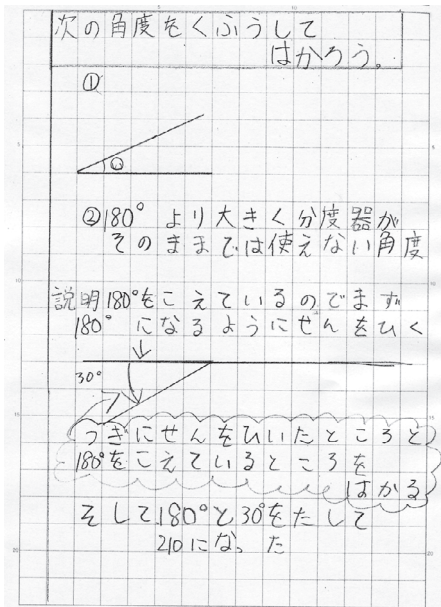 次の角度をくふうして
はかろう。
①
あ
②180°より大きく分度器が
そのままでは使えない角度
説明180°をこえているのでまず
180°になるようにせんをひく
30°
つぎにせんをひいたところと
180°をこえているところを
はかる
そして180°と30°をたして
210になった